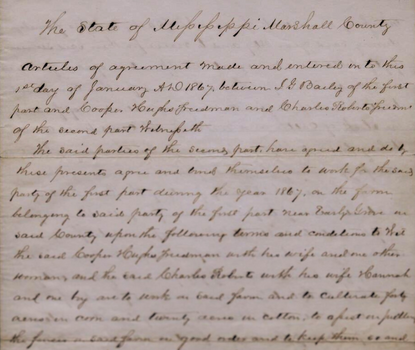 The State of Mississippi Marshall County
Articles of agreement made and entered in to this
1st day of January A.D 1867, between I G Bailey of the first
part and Cooper Hughs Freedman and Charles Roberts Freedman
of the second part Witnesseth
The said parties of the second part have agreed and do by
these presents agree and bind themselves to work for the said
party of the first part during the year 1867, on the farm
belonging to said party of the first part near Early Grove in
said County upon the following terms and conditions to Wit
the said Cooper Hughs Freedman with his wife and one other
woman, and the said Charles Roberts with his wife Hannah
and one boy are to work on said farm and to cultivate forty
acres in corn and twenty acres in cotton, to assist in putting
the fences on said farm in good order and to keep them so and